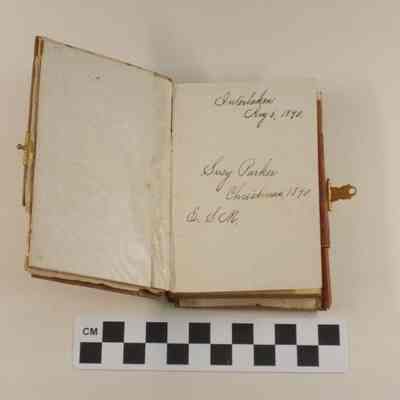 Interlaken
Aug 3, 1890.
Susy Parker
Christmas, 1890.
CM